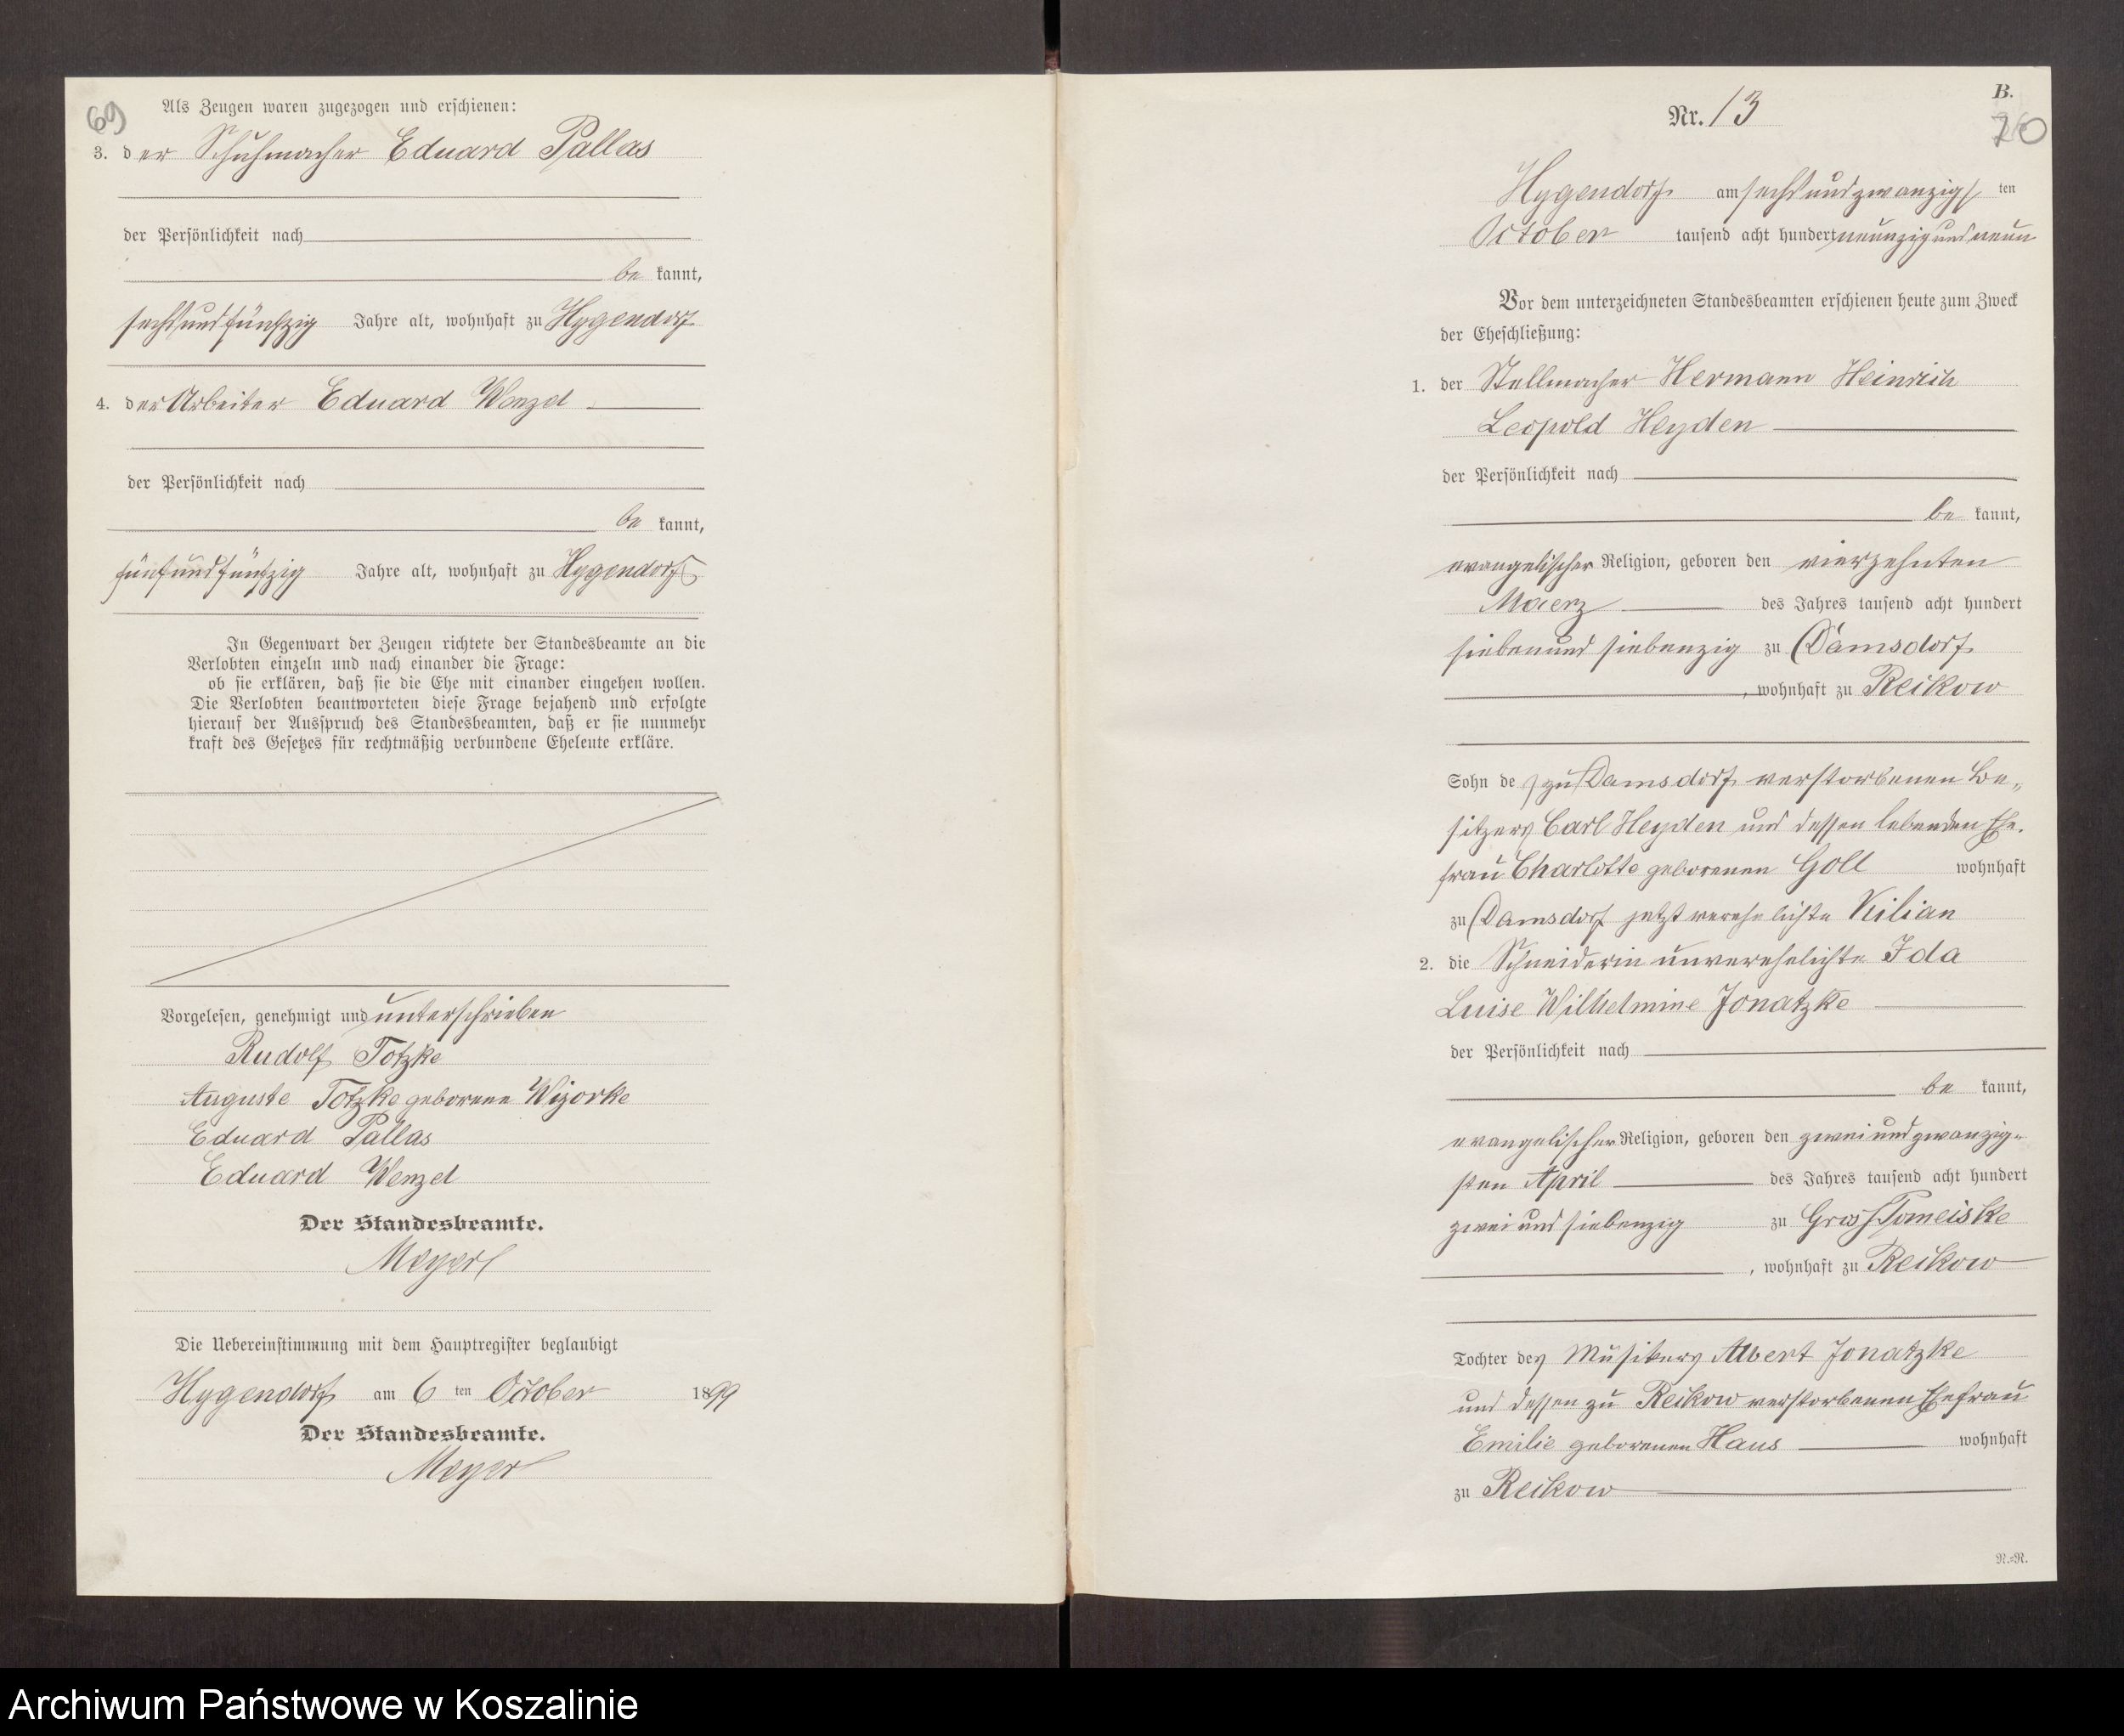 69
Als Zeugen waren zugezogen und erschienen:
3. der Schuhmacher Eduard Pallas
der Persönlichkeit nach
be kannt,
sechsundfünfzig Jahre alt, wohnhaft zu Hygendorf
4. der Arbeiter Eduard Wenzel
der Persönlichkeit nach
be kannt,
fünfundfünfzig Jahre alt, wohnhaft zu Hygendorf
In Gegenwart der Zeugen richtete der Standesbeamte an die
Verlobten einzeln und nach einander die Frage:
ob sie erklären, daß sie die Ehe mit einander eingehen wollen.
Die Verlobten beantworteten diese Frage bejahend und erfolgte
hierauf der Ausspruch des Standesbeamten, daß er sie nunmehr
kraft des Gesetzes für rechtmäßig verbundene Eheleute erkläre.
Vorgelesen, genehmigt und unterschrieben
Rudolf Totzke
Auguste Totzke geborene Wijorke
Eduard Pallas
Eduard Wenzel
Der Standesbeamte.
Meyer
Die Uebereinstimmung mit dem Hauptregister beglaubigt
Hygendorf am 6 ten October 1899
Der Standesbeamte.
Meyer
B.
Nr. 13
70
Hygendorf am sechsundzwanzigs ten
October tausend acht hundert neunzig und neun
Vor dem unterzeichneten Standesbeamten erschienen heute zum Zweck
der Eheschließung:
1. der Stellmacher Hermann Heinrich
Leopold Heyden
der Persönlichkeit nach
be kannt,
evangelischer Religion, geboren den vierzehnten
Maerz des Jahres tausend acht hundert
siebenund siebenzig zu Damsdorf
, wohnhaft zu Reikow
Sohn des zu Damsdorf verstorbenen Be„
sitzers Carl Heyden und dessen lebenden Ehe.
frau Charlotte geborenen Goll wohnhaft
zu Damsdorf jetzt verehelichte Kilian
2. die Schneiderin unverehelichte Ida
Luise Wilhelmine Jonatzke
der Persönlichkeit nach
be kannt,
evangelischer Religion, geboren den zweiundzwanzig„
sten April des Jahres tausend acht hundert
zwei und siebenzig zu Gross Tomeiske
, wohnhaft zu Reikow
Tochter des Musikers Albert Jonatzke
und dessen zu Reikow verstorbenen Ehefrau
Emilie geborenen Haus wohnhaft
zu Reikow
R.=R.
Archiwum Państwowe w Koszalinie